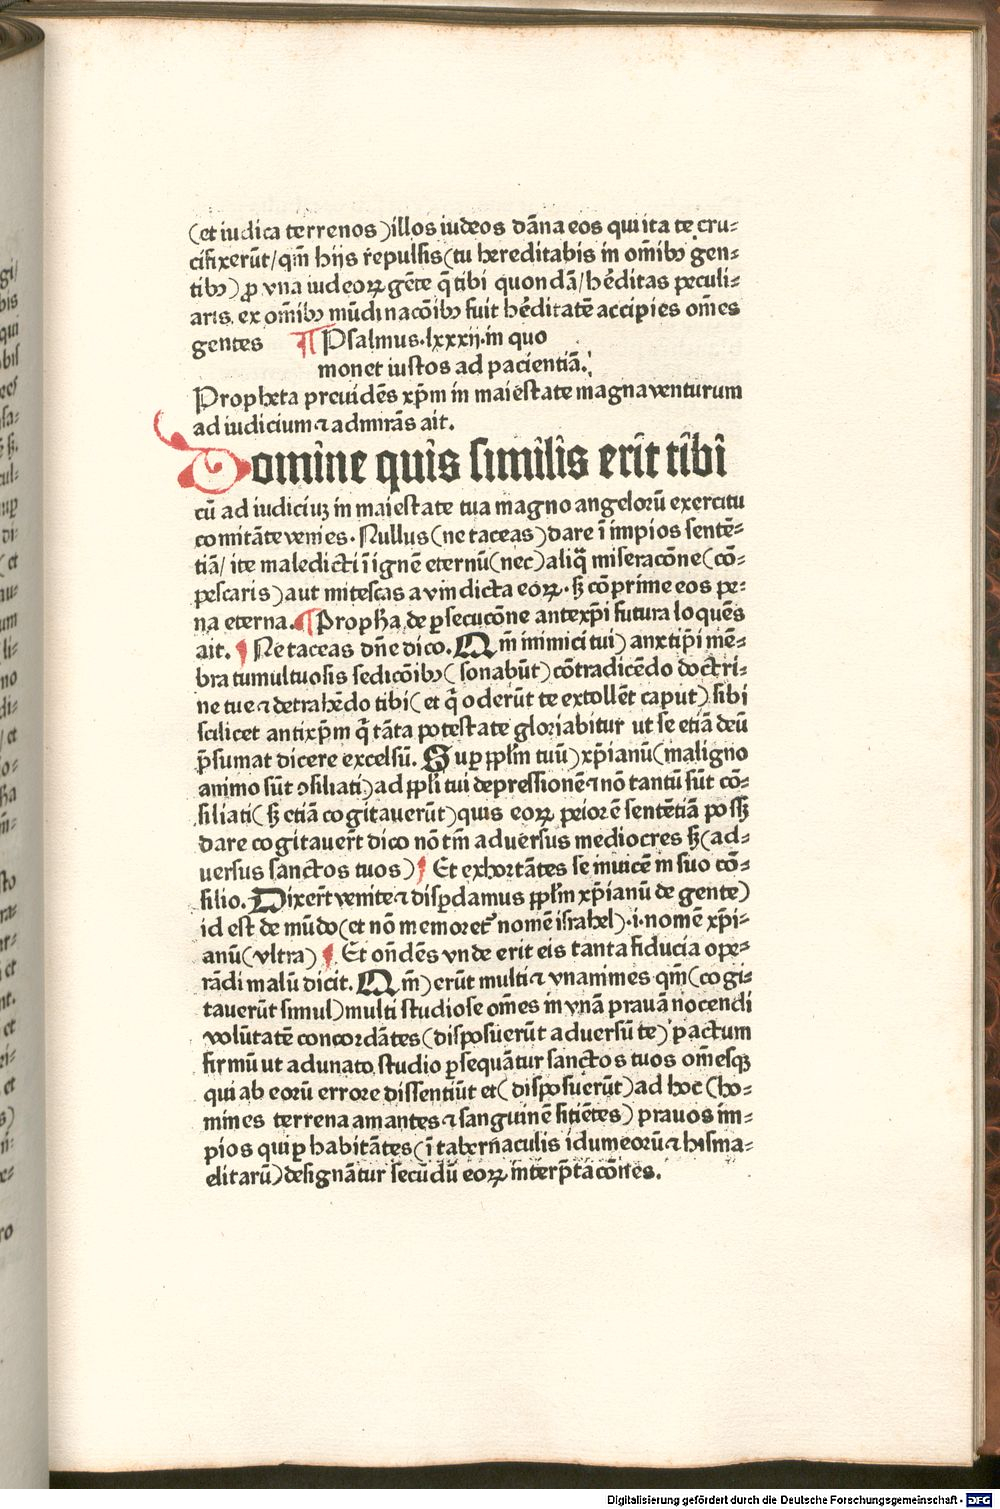 (et iudica terrenos)illos iudeos dāna eos qui ita te cru-
cifixerūt/qm̄ hijs repulsis(tu hereditabis in om̄ibꝫ gen-
tibꝫ)ꝓ vna iudeoꝝ gēte q̄ tibi quondā/hēditas peculi-
aris ex om̄ibꝫ mūdi nacōibꝫ fuit hēditatē accipies om̄es
gentes ¶ Psalmus.lxxxij.in quo
monet iustos ad pacientiā.
Propheta preuidēs xp̄m in maiestate magna venturum
ad iudicium ⁊ admirās ait.
Domine quis similis erit tibi
cū ad iudiciuꝫ in maiestate tua magno angelorū exercitu
comitāte venies. Nullus(ne taceas)dare ī impios sentē-
tiā/ite maledicti ī ignē eternū(nec)aliqͣ miseracōne(cō-
pescaris)aut mitescas a vindicta eoꝝ.sꝫ cōprime eos pe-
na eterna. ¶ Proph̄a de ꝑsecucōne antexp̄i futura loquēs
ait. Ne taceas dn̄e dico. Qm̄ inimici tui) anxtip̄i mē-
bra tumultuosis sedicōibꝫ(sonabūt)cōtradicēdo doctri-
ne tue ⁊ detrahēdo tibi(et q̄ oderūt te extollēt caput) sibi
scilicet antixp̄m q̄ tāta potestate gloriabitur ut se etiā deū
p̄sumat dicere excelsū. Suꝑ pplm̄ tuū)xp̄ianū(maligno
animo sūt ꝯsiliati)ad ppli tui depressionē ⁊ nō tantū sūt cō-
siliati(sꝫ etiā cogitauerūt)quis eoꝝ peiorē sentētiā possꝫ
dare cogitauer̄t dico nō tm̄ aduersus mediocres sꝫ(ad-
uersus sanctos tuos) Et exhortātes se inuicē in suo cō-
silio. Dixer̄t venite ⁊ disꝑdamus pplm̄ xp̄ianū de gente)
id est de mūdo(et nō memoret᷑ nomē israhel).i.nomē xp̄i-
anū(vltra) Et on̄dēs vnde erit eis tanta fiducia ope-
rādi malū dicit. Qm̄)erūt multi ⁊ vnanimes qm̄(cogi-
tauerūt simul)multi studiose om̄es in vnā prauā nocendi
volūtatē concordātes(disposuerūt aduersū te) pactum
firmū ut adunato studio ꝑsequātur sanctos tuos om̄esqꝫ
qui ab eorū errore dissentiūt et(disposuerūt)ad hoc(ho-
mines terrena amantes ⁊ sanguinē sitiētes) prauos im-
pios qui ꝑ habitātes(ī tabern̄aculis idumeorū ⁊ hisma-
elitarū)designātur secūdū eoꝝ interp̄tacōnes.
Digitalisierung gefördert durch die Deutsche Forschungsgemeinschaft - DFG